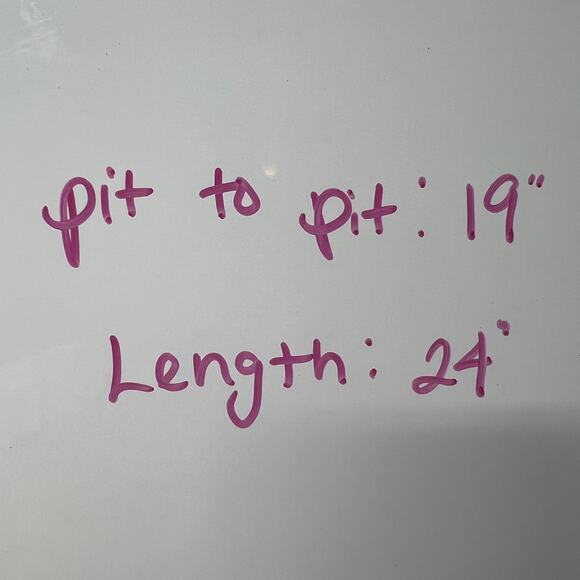 pit to pit: 19"
Length: 24"